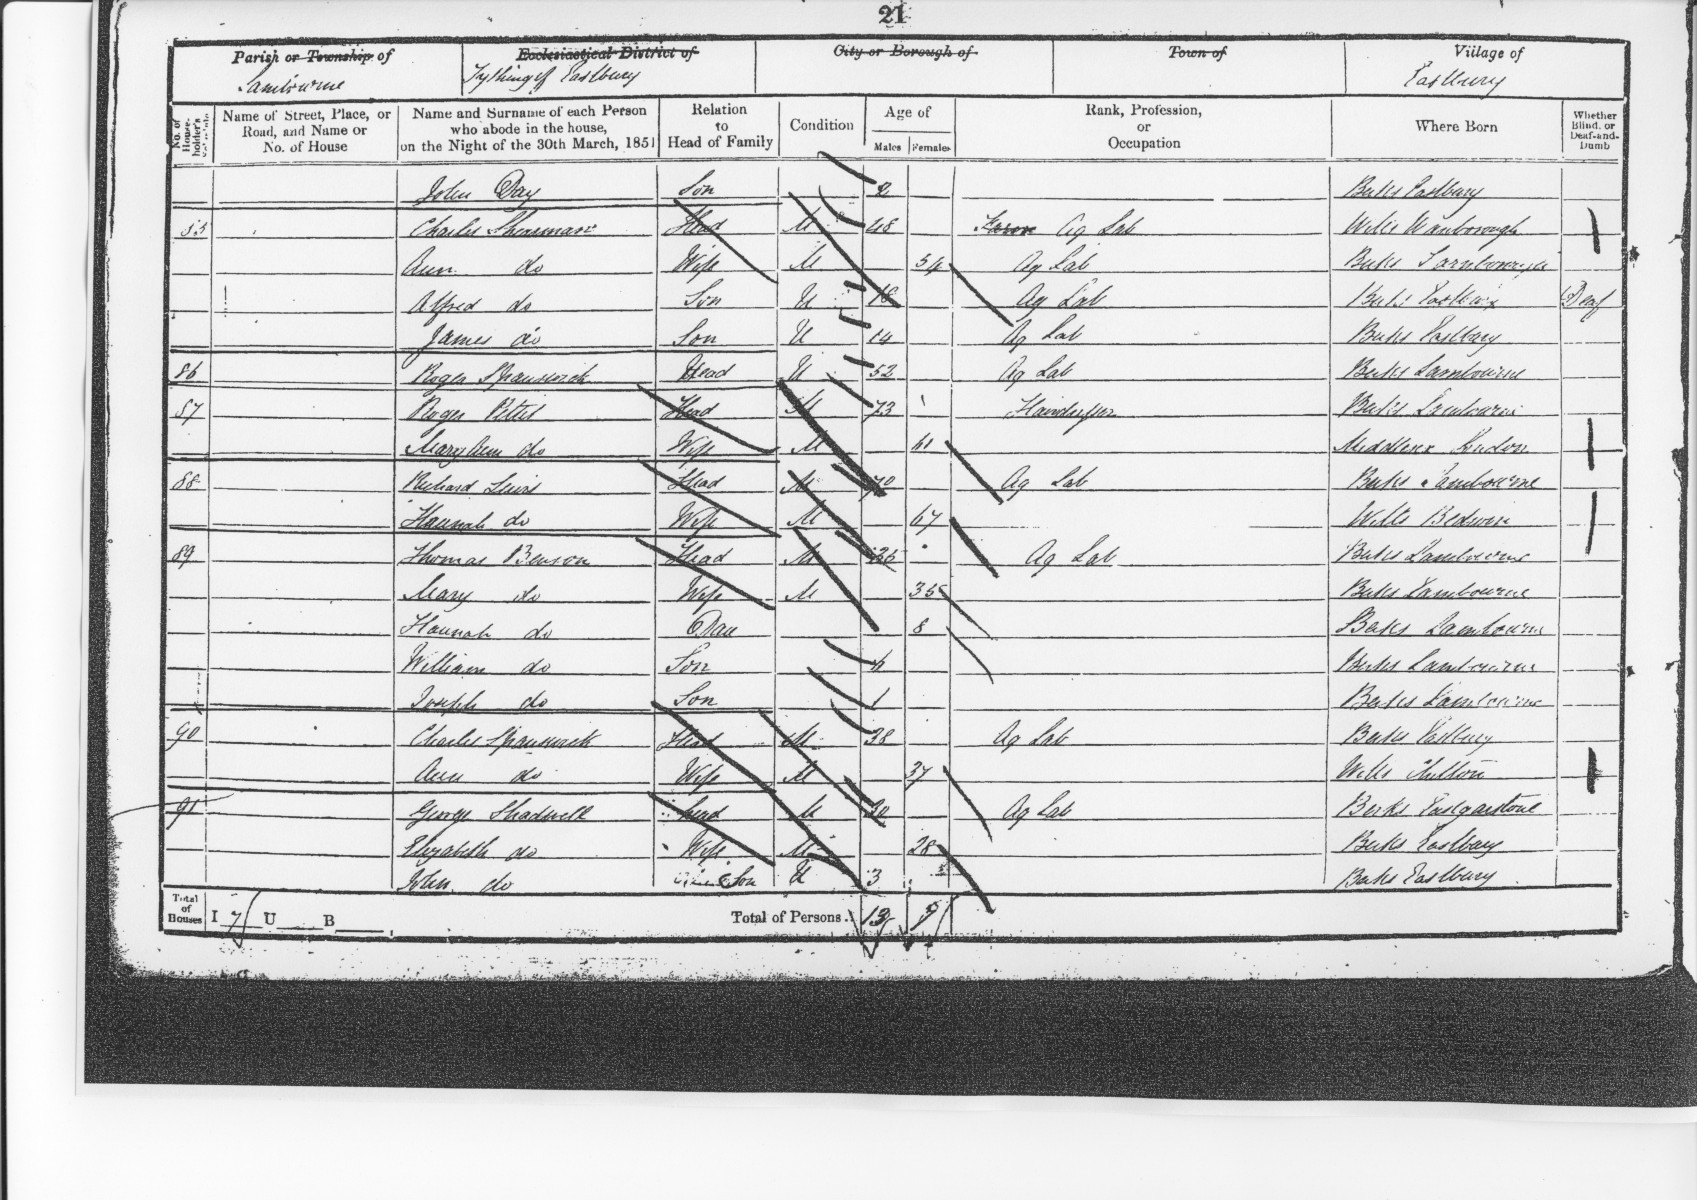 21
Parish or Township of Ecclesiastical District of City or Borough of Town of Village of
Lambourne Tything of Eastbury Eastbury
No. of House-holder's Name of Street, Place, or Road, and Name or No. of House Name and Surname of each Person who abode in the house, on the Night of the 30th March, 1851 Relation to Head of Family Condition Age of Males Females Rank, Profession, or Occupation Where Born Whether Blind, or Deaf-and-Dumb
John Day Son 2 Berks Eastbury
85 Charles Head M 48 Ag Lab Wilts Wanborough
Ann do Wife M 54 Ag Lab Berks
Alfred do Son U 18 Ag Lab Berks Deaf
James do Son U 14 Ag Lab Berks Eastbury
86 Roger Spanswick Head U 52 Ag Lab Berks Lambourne
87 Roger Head M 73 Berks Lambourne
Mary Ann do Wife M 61 Middlesex London
88 Richard Lewis Head M 70 Ag Lab Berks Lambourne
Hannah do Wife M 67 Wilts Bedwin
89 Thomas Benson Head M 36 Ag Lab Berks Lambourne
Mary do Wife M 35 Berks Lambourne
Hannah do Dau 8 Berks Lambourne
William do Son 4 Berks Lambourne
Joseph do Son 1 Berks Lambourne
90 Charles Spanswick Head M 38 Ag Lab Berks Eastbury
Ann do Wife M 37 Wilts
91 George Shadwell Head M 30 Ag Lab Berks Eastgarstone
Elizabeth do Wife M 28 Berks Eastbury
John do Son U 3 Berks Eastbury
Total of Houses I 7 U B Total of Persons 13